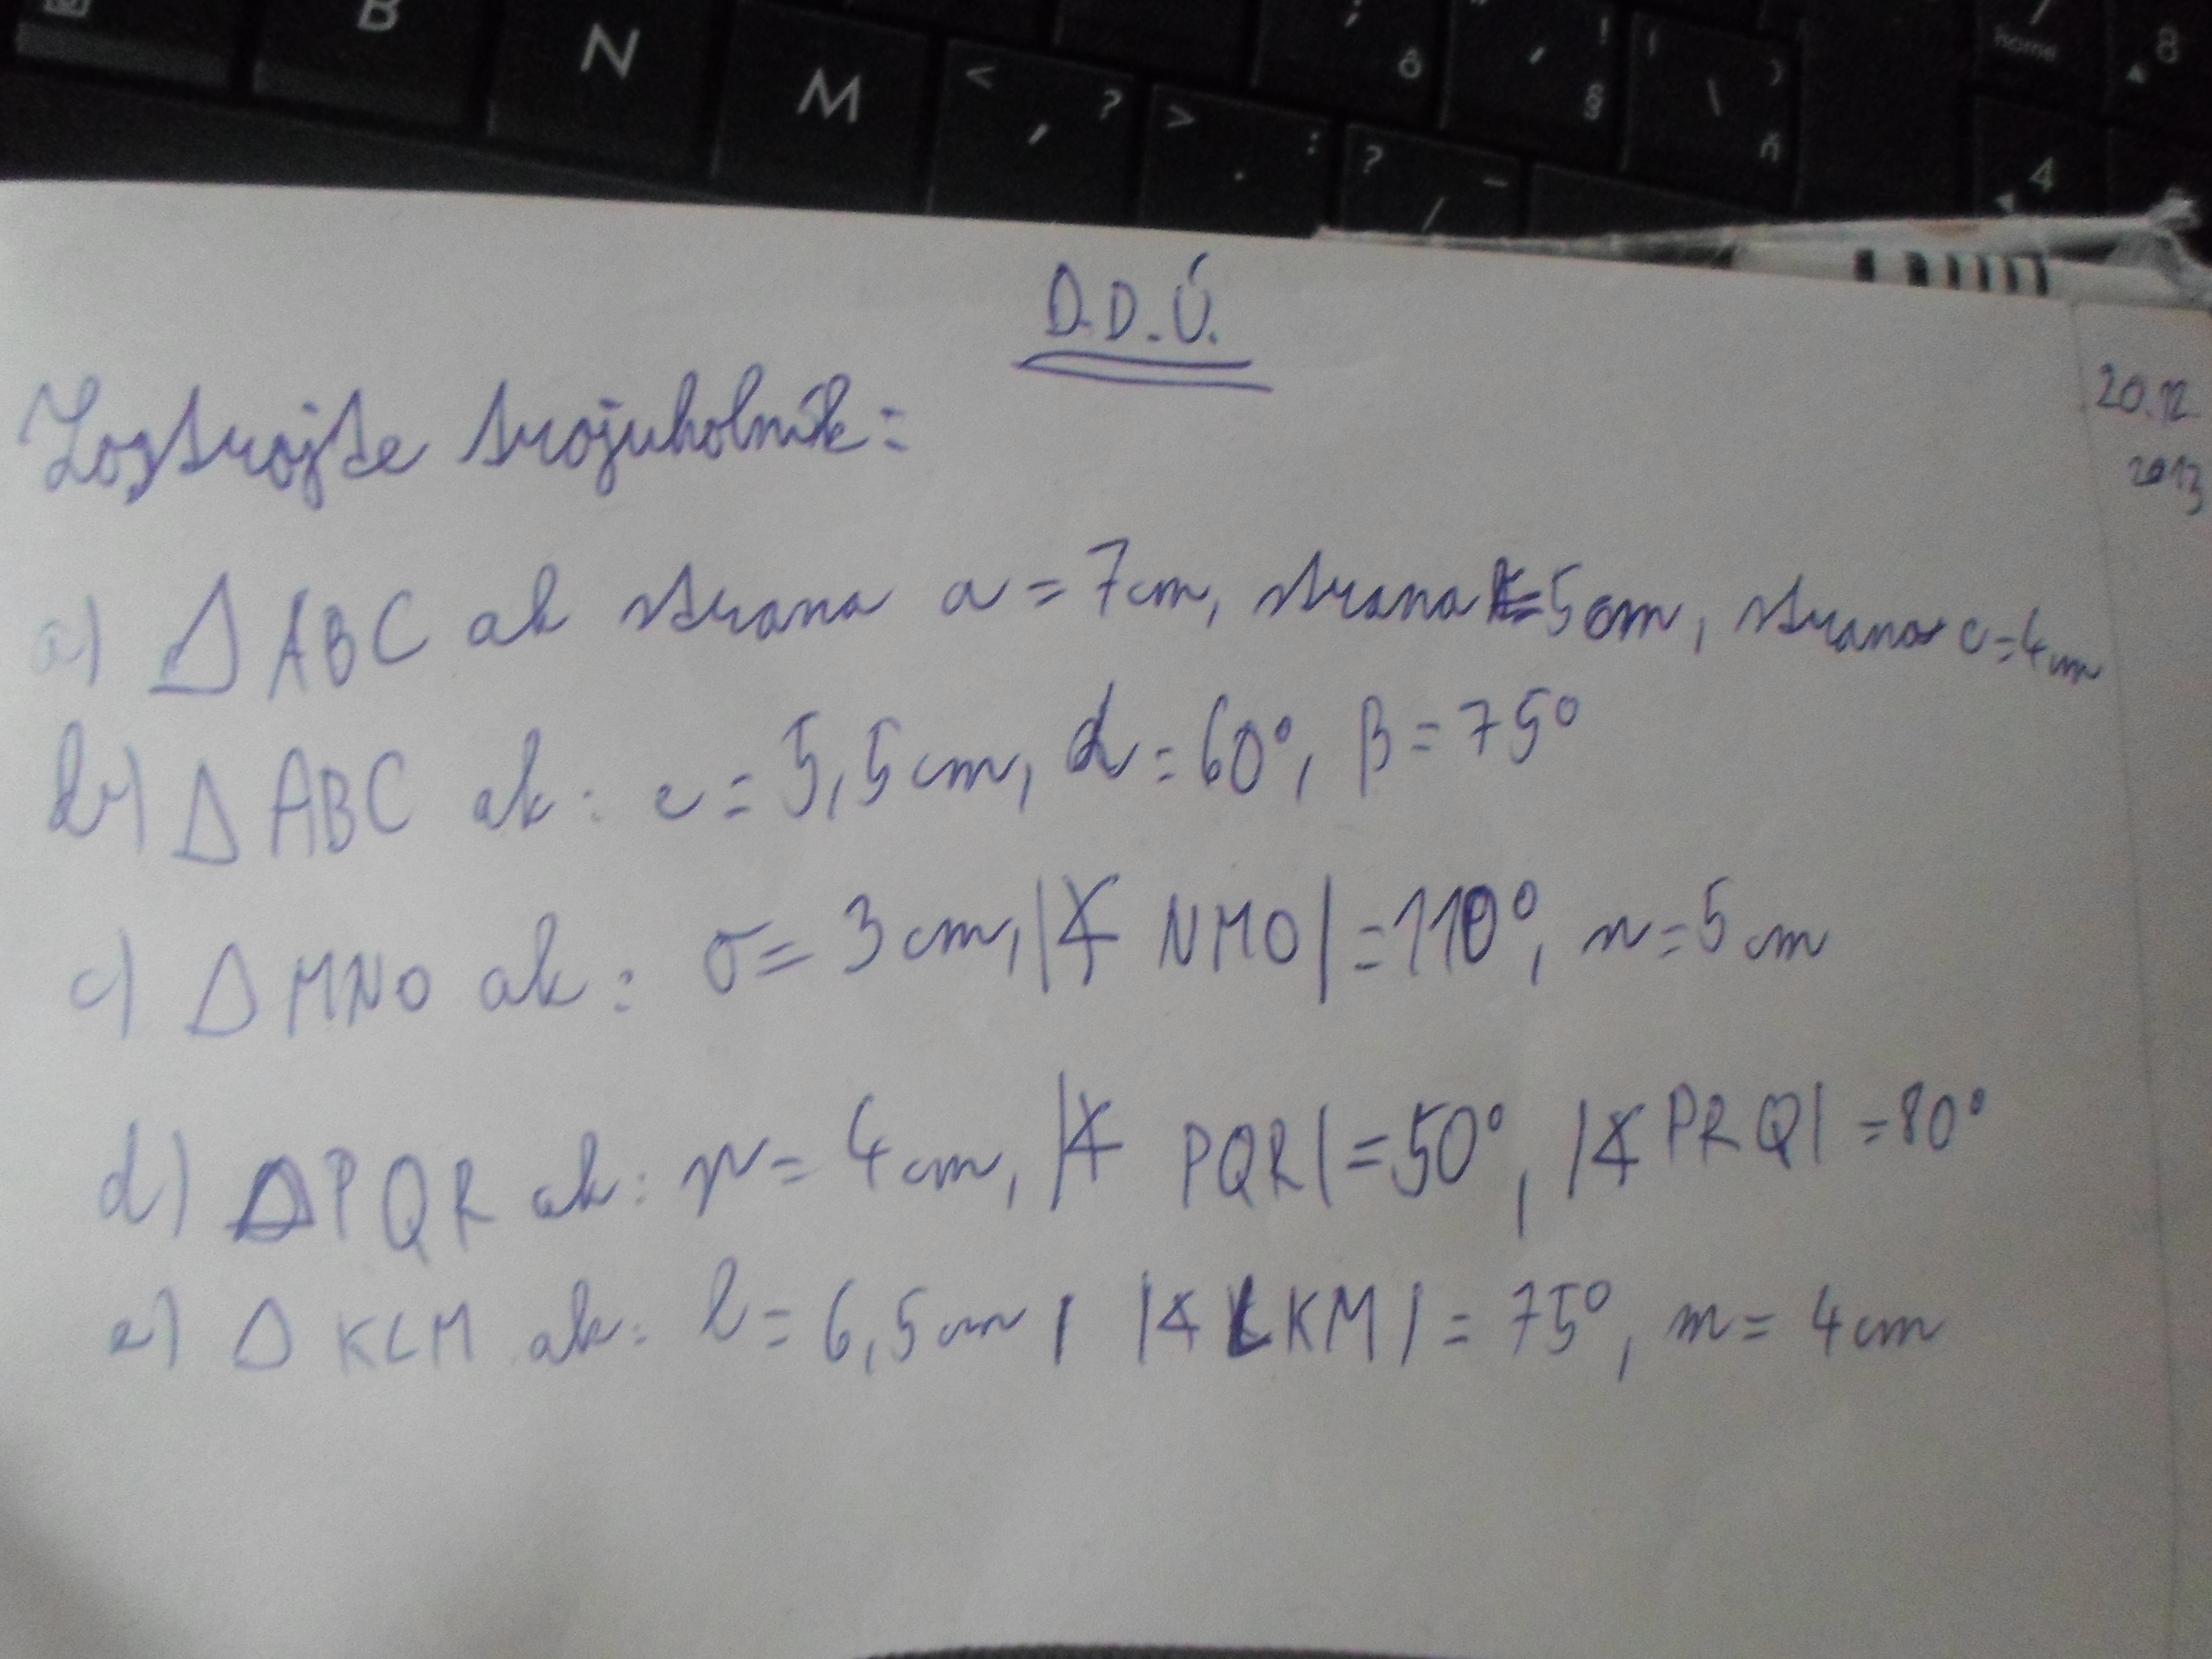 B
N
M
< , ?
> . :
? / -
; ô
" ' ! §
! \ ) ň
7 home
8
4
D.D.Ú.
20.12.
2013
Zostrojte trojuholník:
a) △ ABC ak strana a = 7cm, strana b=5cm, strana c=4cm
b) △ ABC ak: c = 5,5cm, α = 60°, β = 75°
c) △ MNO ak: σ = 3cm, |∢ NMO| = 110°, n = 5cm
d) △ PQR ak: p = 4cm, |∢ PQR| = 50°, |∢ PRQ| = 80°
e) △ KLM ak: l = 6,5cm, |∢ LKM| = 75°, m = 4cm